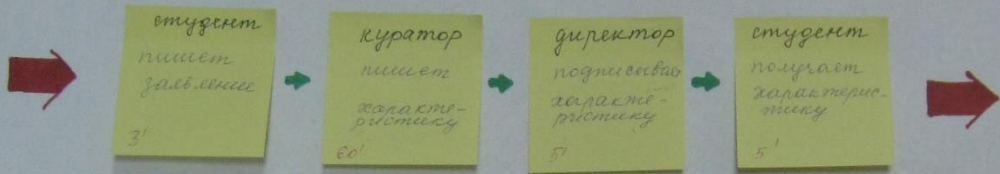 студент
пишет
заявление
3'
куратор
пишет
характе-
ристику
60'
директор
подписывает
характе-
ристику
5'
студент
получает
характерис-
тику
5'